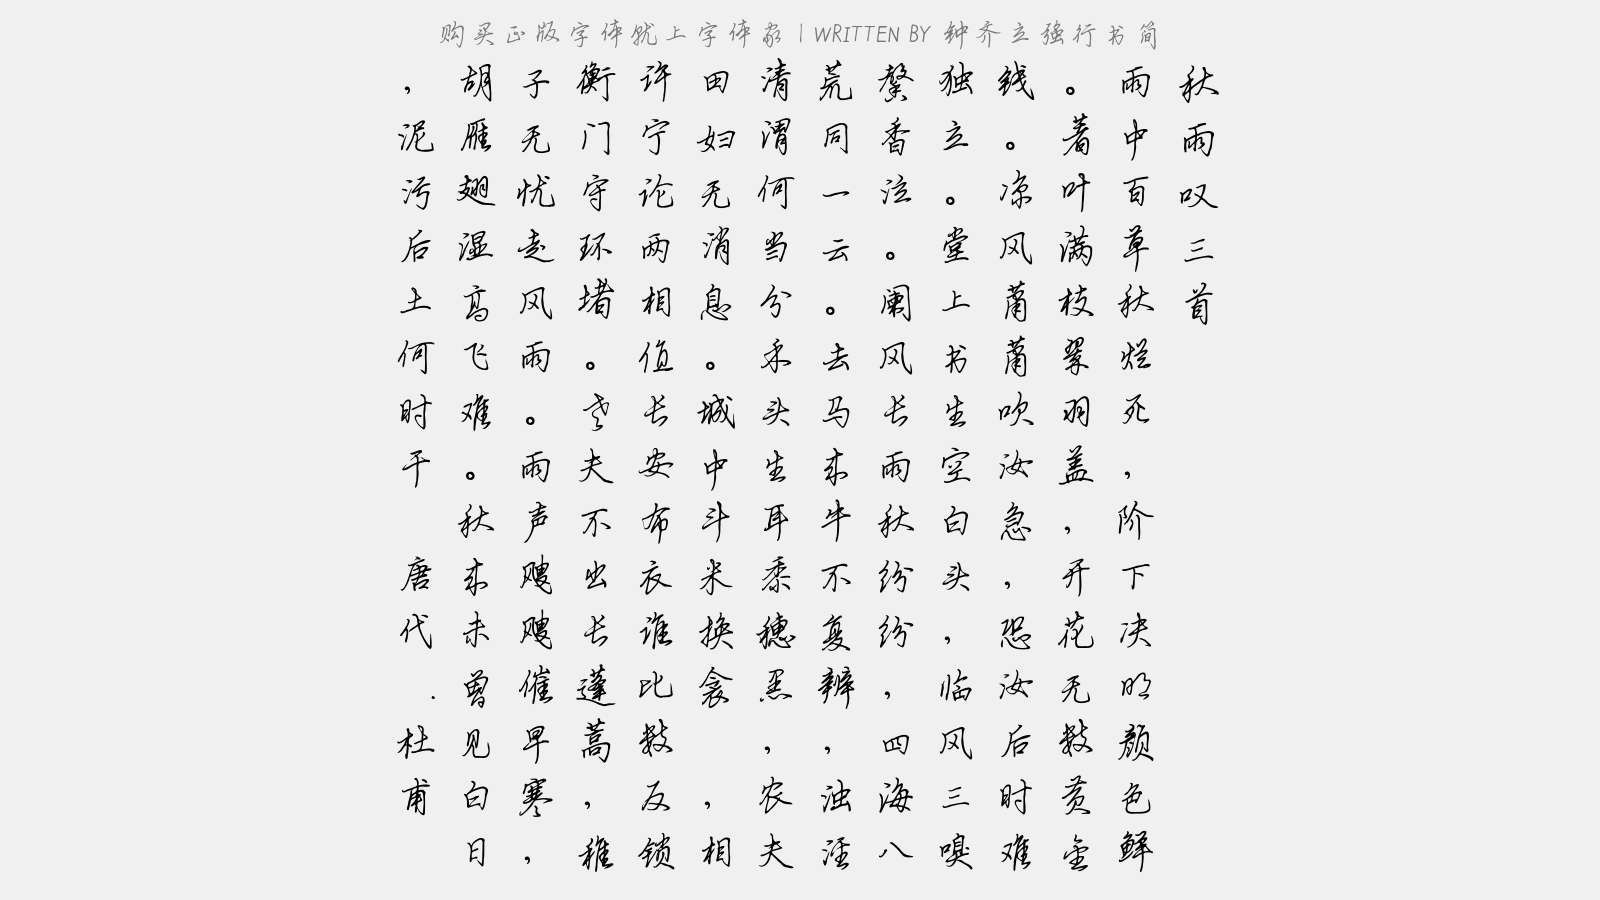 购买正版字体就上字体家 | WRITTEN BY 钟齐立强行书简
秋雨叹三首
雨中百草秋烂死，阶下决明颜色鲜
。著叶满枝翠羽盖，开花无数黄金
钱。凉风萧萧吹汝急，恐汝后时难
独立。堂上书生空白头，临风三嗅
馨香泣。阑风长雨秋纷纷，四海八
荒同一云。去马来牛不复辨，浊泾
清渭何当分禾头生耳黍穗黑，农夫
田妇无消息。城中斗米换衾 ，相
许宁论两相值长安布衣谁比数反锁
衡门守环堵。老夫不出长蓬蒿，稚
子无忧走风雨。雨声飕飕催早寒，
胡雁翅湿高飞难。秋来未曾见白日
，泥污后土何时干 唐代.杜甫